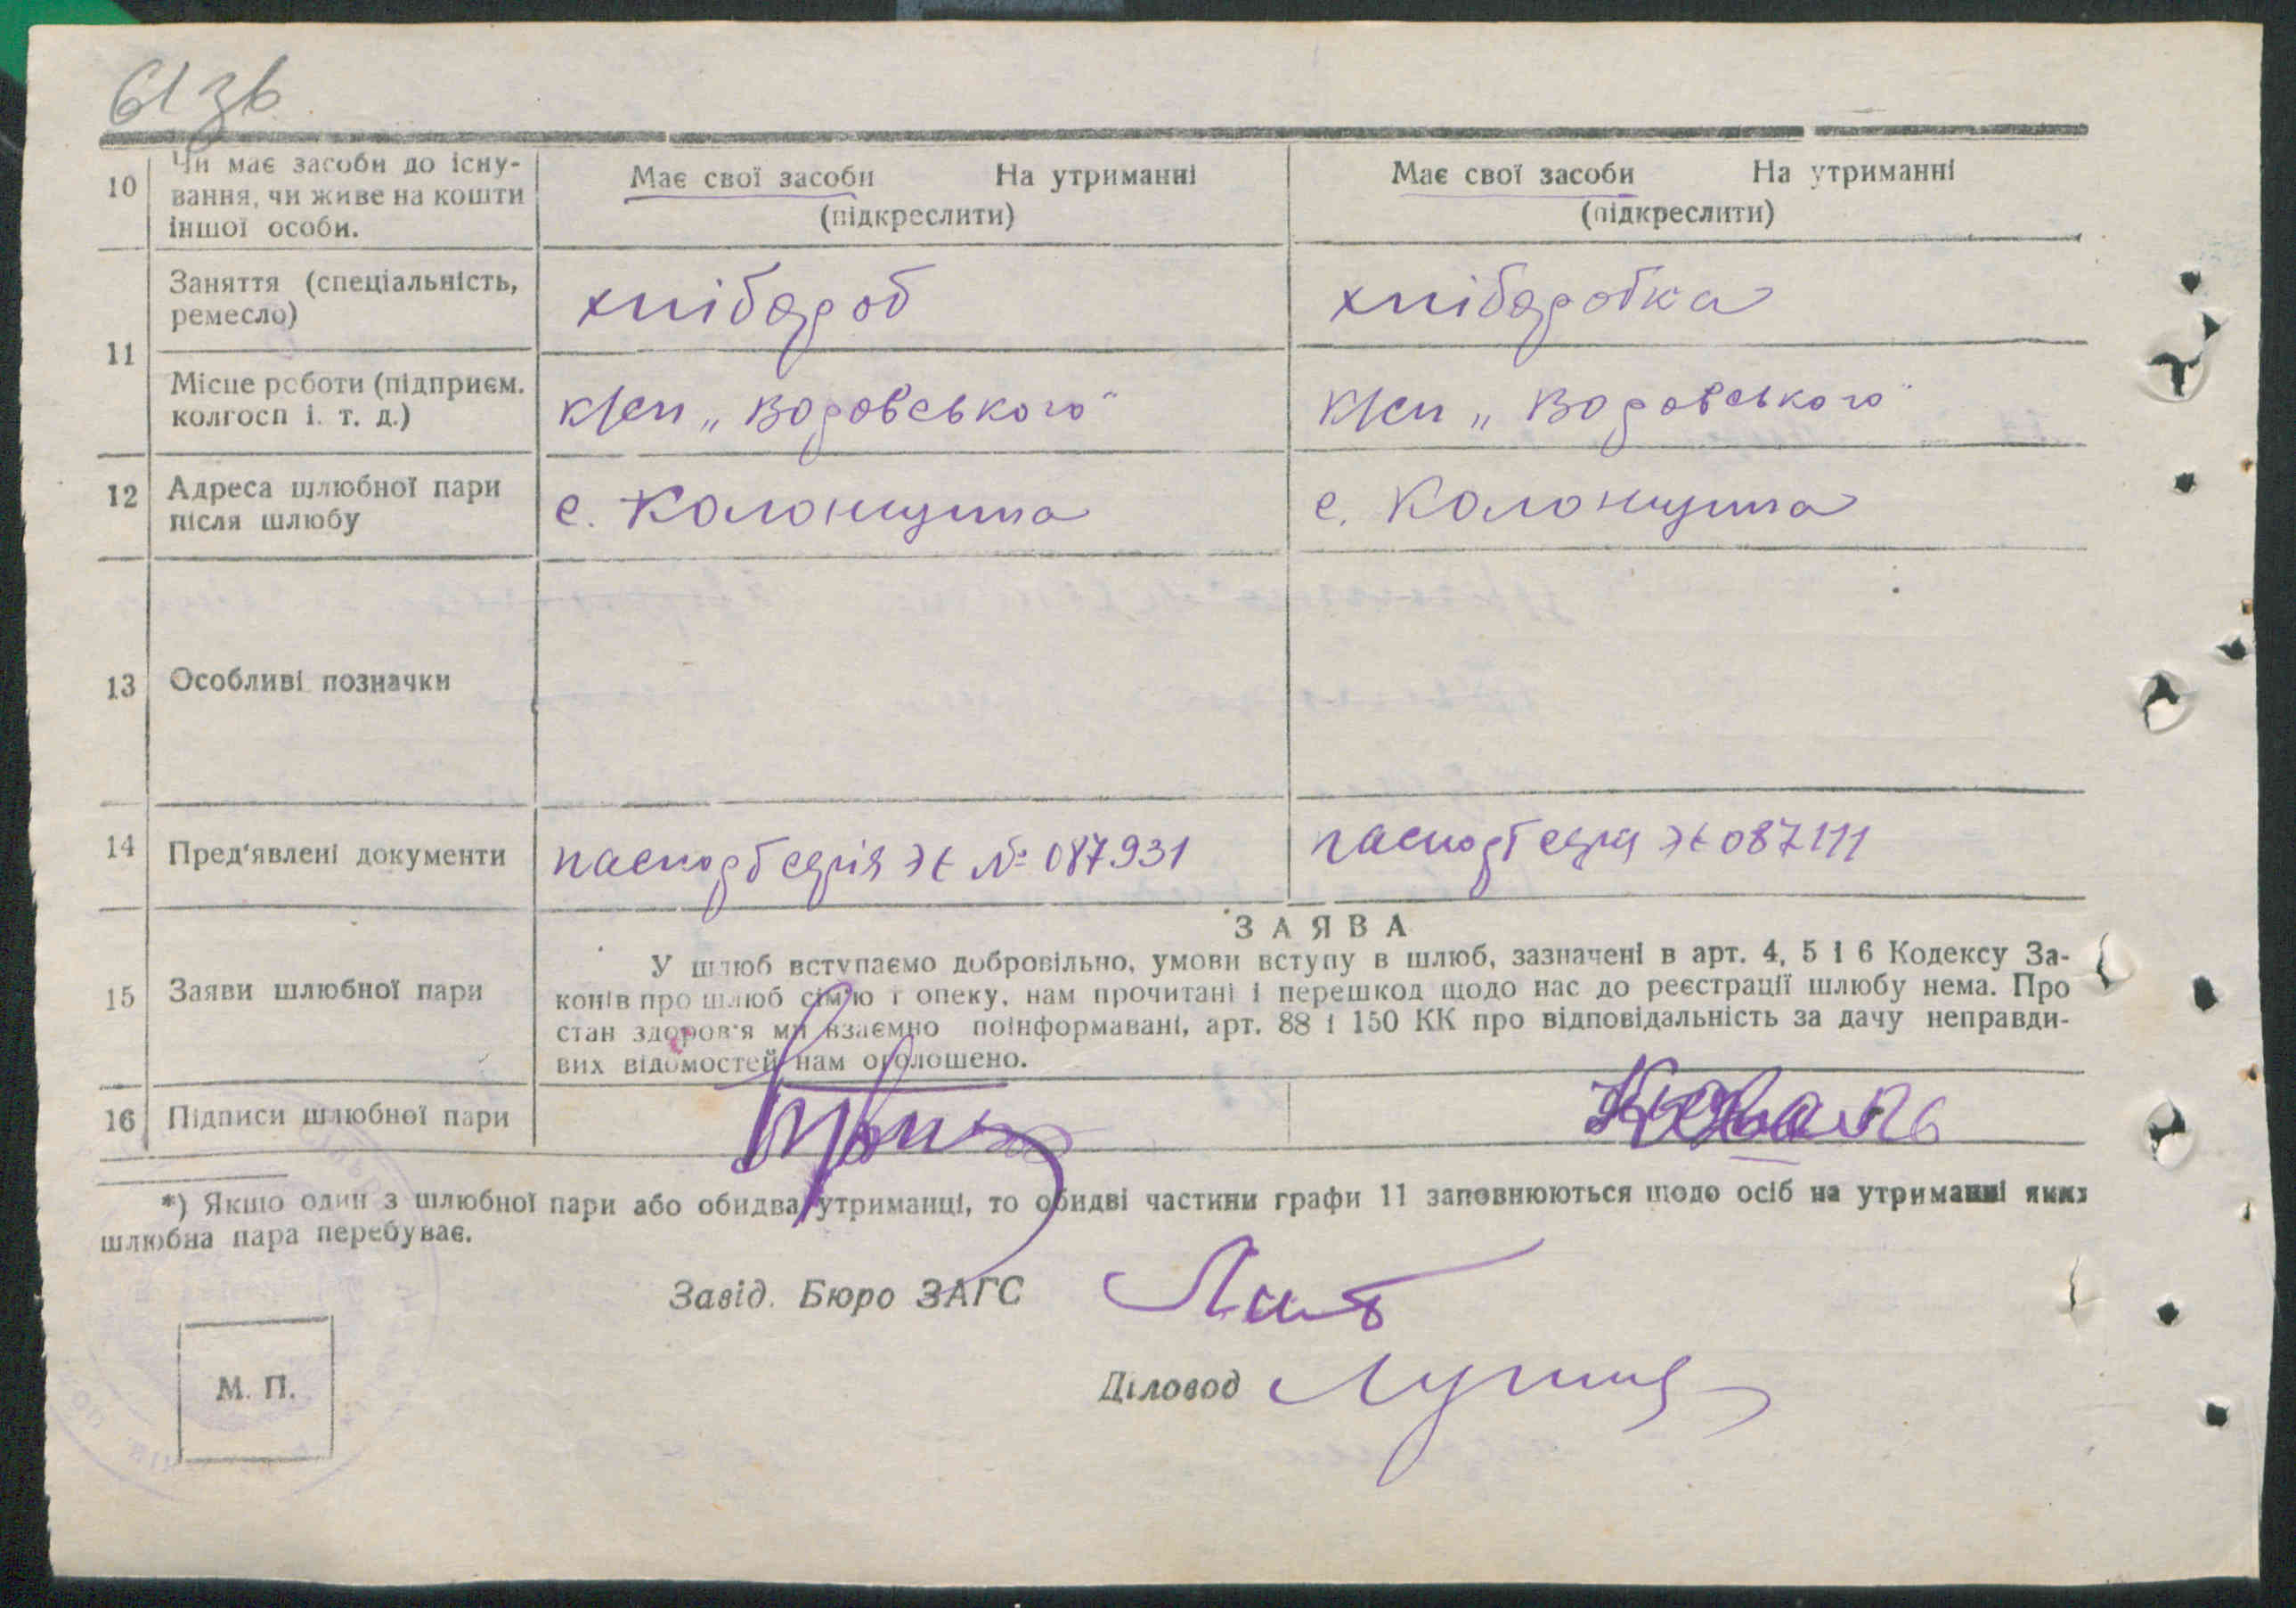 61 зв
10 Чи має засоби до існу-
вання, чи живе на кошти
іншої особи.
Має свої засоби На утриманні
(підкреслити)
Має свої засоби На утриманні
(підкреслити)
11
Заняття (спеціальність,
ремесло)
хлібороб
хлібаробка
Місце роботи (підприєм.
колгосп і. т. д.)
к/сп „Воровського"
к/сп „Воровського"
12 Адреса шлюбної пари
після шлюбу
с. Колонщина
с. Колонщина
13 Особливі позначки
14 Пред'явлені документи
паспорт серія ЭЕ № 087931
паспорт серія ЭЕ 087111
ЗАЯВА
15 Заяви шлюбної пари
У шлюб вступаємо добровільно, умови вступу в шлюб, зазначені в арт. 4, 5 і 6 Кодексу За-
конів про шлюб сім'ю і опеку, нам прочитані і перешкод щодо нас до реєстрації шлюбу нема. Про
стан здоров'я ми взаємно поінформавані, арт. 88 і 150 КК про відповідальність за дачу неправди-
вих відомостей нам оголошено.
16 Підписи шлюбної пари
Коваль
*) Якшо один з шлюбної пари або обидва утриманці, то обидві частини графи 11 заповнюються щодо осіб на утриманні яких
шлюбна пара перебуває.
Завід. Бюро ЗАГС
Діловод
М. П.